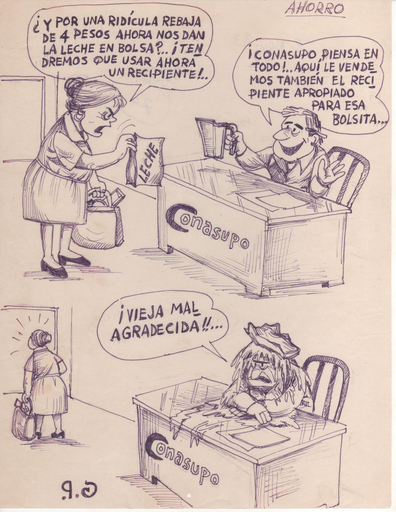 AHORRO
¿Y POR UNA RIDÍCULA REBAJA
DE 4 PESOS AHORA NOS DAN
LA LECHE EN BOLSA?..¡TEN
DREMOS QUE USAR AHORA
UN RECIPIENTE!..
¡CONASUPO, PIENSA EN
TODO!..AQUÍ LE VENDE
MOS TAMBIÉN EL RECI
PIENTE APROPIADO
PARA ESA
BOLSITA...
LECHE
Conasupo
¡VIEJA MAL
AGRADECIDA!!...
Conasupo
G.R.